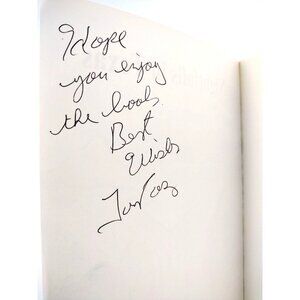 I Hope
you enjoy
the book.
Best
Wishes